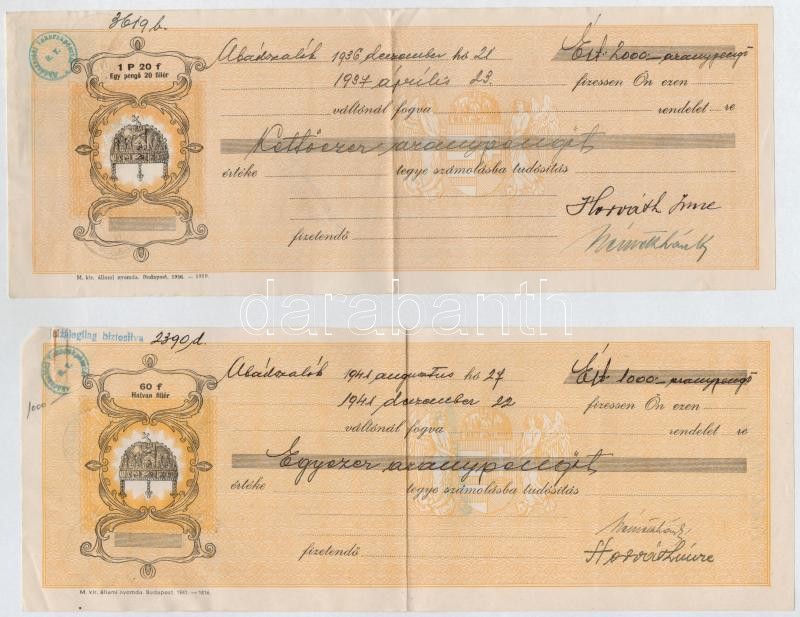 3619 b.
1 P 20 f
Egy pengő 20 fillér
Abádszalók 1936 december hó 21 Ért 2000.- aranypengő
1937 április 23. fizessen Ön ezen
váltónál fogva rendelet re
Kettőezer aranypengőt
értéke tegye számolásba tudósítás
Horváth Imre
fizetendő
M. kir. állami nyomda. Budapest, 1936. —
darabanth
zálogilag biztosítva 2390 d.
1000
60 f
Hatvan fillér
Abádszalók 1941 augusztus hó 27 Ért 1000.- aranypengő
1941 december 22 fizessen Ön ezen
váltónál fogva rendelet re
Egyezer aranypengőt
értéke tegye számolásba tudósítás
Horváth Imre
fizetendő
M. kir. állami nyomda. Budapest, 1941. —